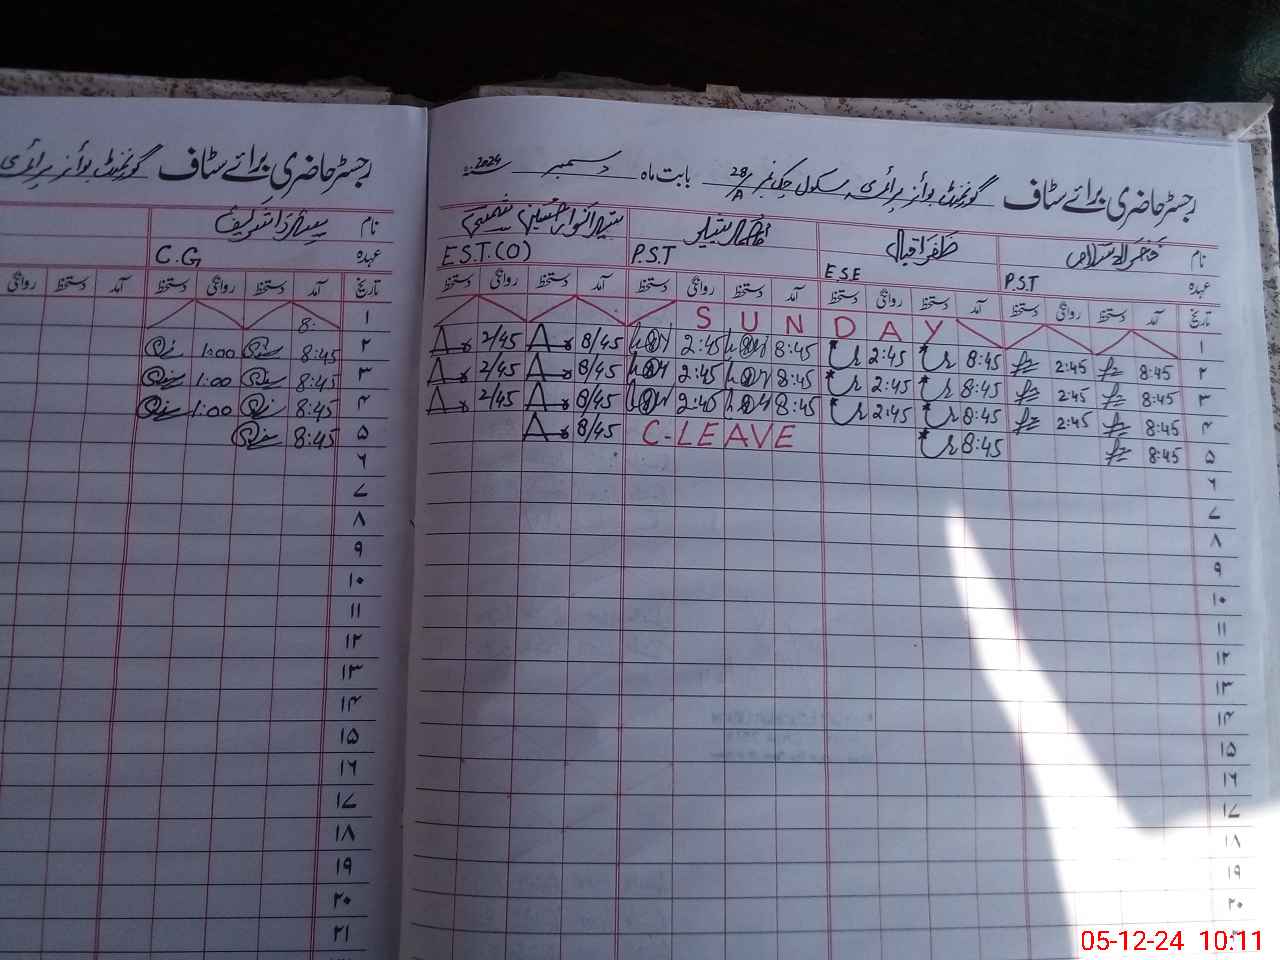 رجسٹر حاضری برائے سٹاف گورنمنٹ بوائز پرائمری سکول چک نمبر 28/A بابت ماہ دسمبر 2024ء
نام فخرالاسلام ظفر اقبال
عہدہ P.S.T E.S.E P.S.T E.S.T.(O)
تاریخ آمد دستخط روانگی دستخط آمد دستخط روانگی دستخط آمد دستخط روانگی دستخط آمد دستخط روانگی دستخط
۱ SUNDAY
۲ 8:45 2:45 8:45 2:45 8:45 2:45 8/45 2/45
۳ 8:45 2:45 8:45 2:45 8:45 2:45 8/45 2/45
۴ 8:45 2:45 8:45 2:45 8:45 2:45 8/45 2/45
۵ 8:45 8:45 C-LEAVE 8/45
۶
۷
۸
۹
۱۰
۱۱
۱۲
۱۳
۱۴
۱۵
۱۶
۱۷
۱۸
۱۹
۲۰
رجسٹر حاضری برائے سٹاف گورنمنٹ بوائز پرائمری
نام
عہدہ C.G
تاریخ آمد دستخط روانگی دستخط آمد دستخط روانگی
۱ 8:
۲ 8:45 1:00
۳ 8:45 1:00
۴ 8:45 1:00
۵ 8:45
۶
۷
۸
۹
۱۰
۱۱
۱۲
۱۳
۱۴
۱۵
۱۶
۱۷
۱۸
۱۹
۲۰
۲۱
05-12-24 10:11